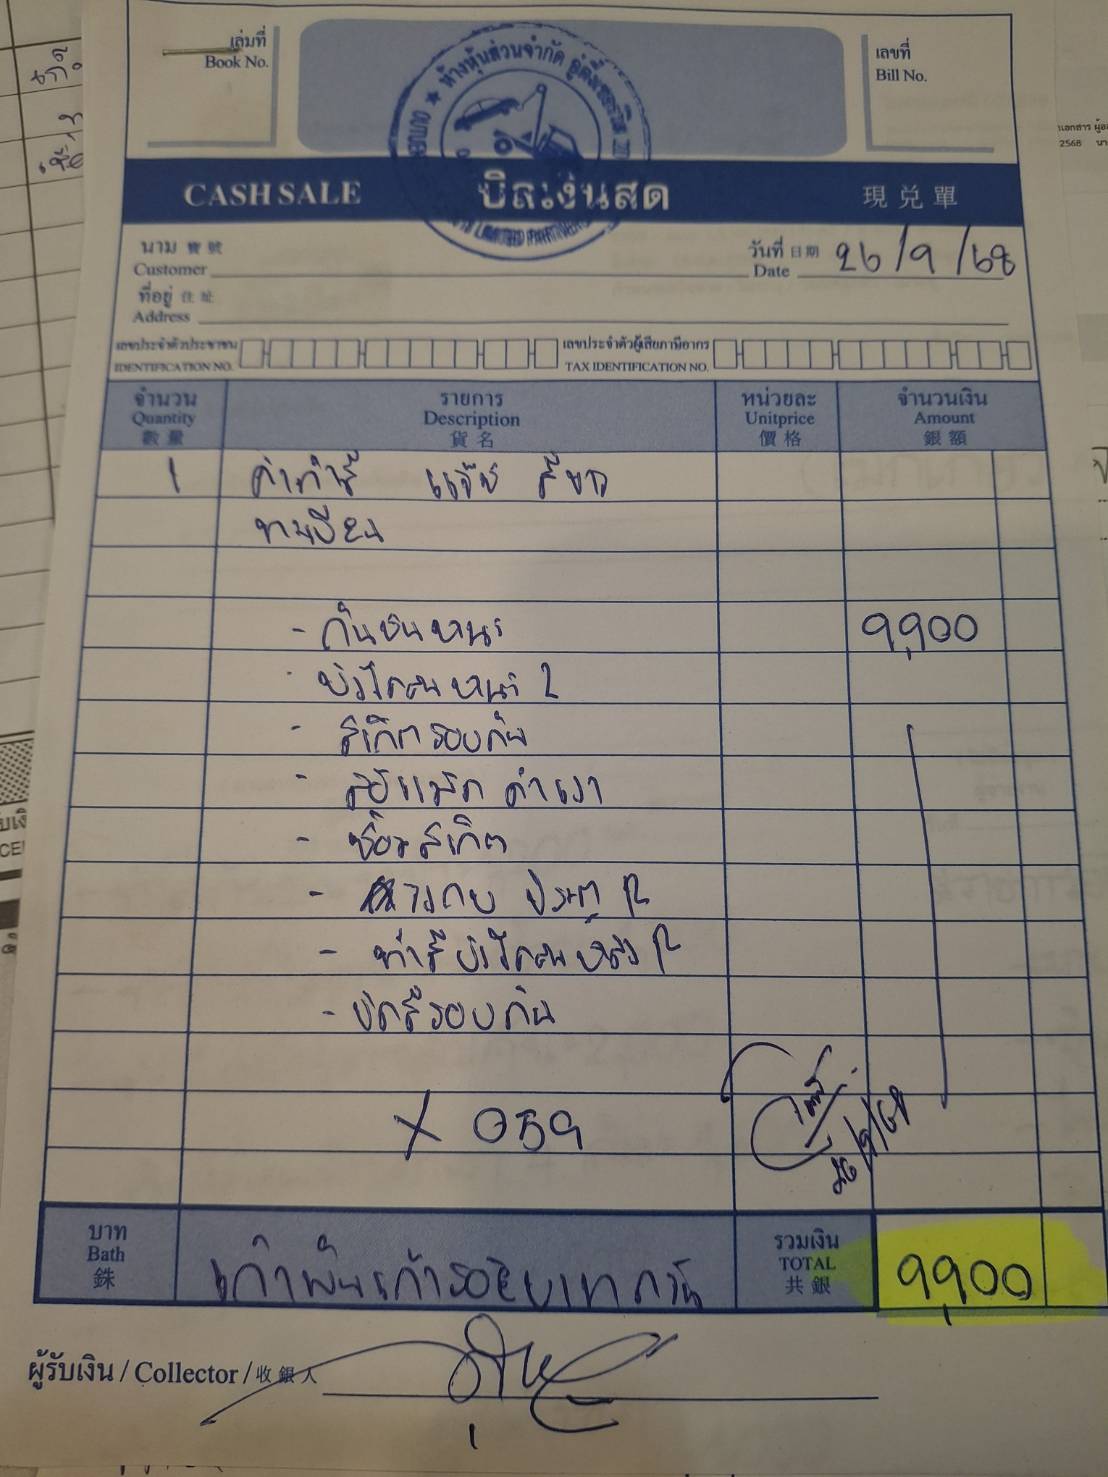 เล่มที่
Book No.
เลขที่
Bill No.
ห้างหุ้นส่วนจำกัด
CASH SALE บิลเงินสด 現兌單
นาม 寶號
Customer
วันที่ 日期 26/9/68
Date
ที่อยู่ 住址
Address
เลขประจำตัวประชาชน
IDENTIFICATION NO.
เลขประจำตัวผู้เสียภาษีอากร
TAX IDENTIFICATION NO.
จำนวน รายการ หน่วยละ จำนวนเงิน
Quantity Description Unitprice Amount
數量 貨名 價格 銀額
1 ค่าทำสี แจ๊ซ สีขาว
ทะเบียน
- กันชนหน้า 9,900
- บังโคลนหน้า 2
- สเกิตรอบคัน
- ดำเงา
- ซ่อมสเกิต
- ประตู R
- ทำสีบังโคลนหลัง R
- ขัดสีรอบคัน
X 059
26/9/68
บาท
Bath
銖
เก้าพันเก้าร้อยบาทถ้วน
รวมเงิน
TOTAL
共銀
9,900
ผู้รับเงิน / Collector / 收銀人